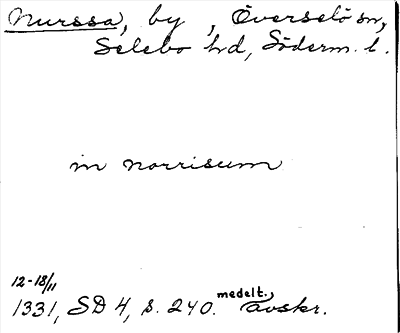 Nurssa, by, Överselö sn,
Selebo hd, Söderm. l.
in norrisum
12-18/11
1331, SD 4, s. 240. medelt. avskr.